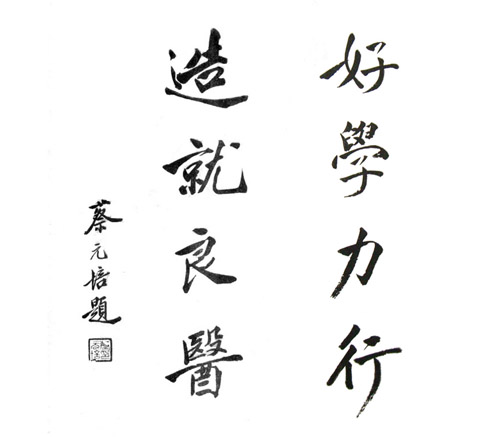 好學力行
造就良醫
蔡元培題